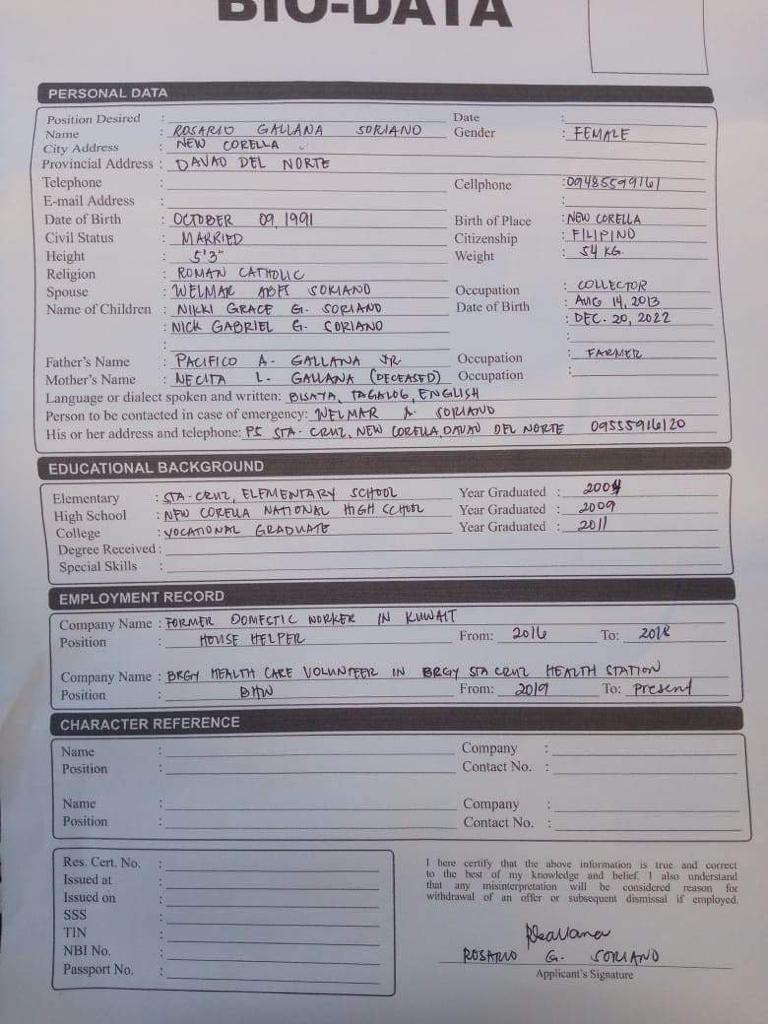 BIO-DATA
PERSONAL DATA
Position Desired : Date :
Name : ROSARIO GALLANA SORIANO Gender : FEMALE
City Address : NEW CORELLA
Provincial Address : DAVAO DEL NORTE
Telephone : Cellphone : 09485599161
E-mail Address : :
Date of Birth : OCTOBER 09, 1991 Birth of Place : NEW CORELLA
Civil Status : MARRIED Citizenship : FILIPINO
Height : 5'3" Weight : 54 KG.
Religion : ROMAN CATHOLIC
Spouse : WELMAR SORIANO Occupation : COLLECTOR
Name of Children : NIKKI GRACE G. SORIANO Date of Birth : AUG 14, 2013
: NICK GABRIEL G. SORIANO : DEC. 20, 2022
: :
Father's Name : PACIFICO A. GALLANA JR Occupation : FARMER
Mother's Name : NECITA L. GALLANA (DECEASED) Occupation :
Language or dialect spoken and written: BISAYA, TAGALOG, ENGLISH
Person to be contacted in case of emergency: WELMAR A. SORIANO
His or her address and telephone: P5 STA. CRUZ, NEW CORELLA, DAVAO DEL NORTE 09555916120
EDUCATIONAL BACKGROUND
Elementary : STA. CRUZ, ELEMENTARY SCHOOL Year Graduated : 2004
High School : NEW CORELLA NATIONAL HIGH SCHOOL Year Graduated : 2009
College : VOCATIONAL GRADUATE Year Graduated : 2011
Degree Received :
Special Skills :
EMPLOYMENT RECORD
Company Name : FORMER DOMESTIC WORKER IN KUWAIT
Position : HOUSE HELPER From: 2016 To: 2018
Company Name : BRGY HEALTH CARE VOLUNTEER IN BRGY STA CRUZ HEALTH STATION
Position : BHW From: 2019 To: present
CHARACTER REFERENCE
Name : Company :
Position : Contact No. :
Name : Company :
Position : Contact No. :
Res. Cert. No. :
Issued at :
Issued on :
SSS :
TIN :
NBI No. :
Passport No. :
I here certify that the above information is true and correct
to the best of my knowledge and belief. I also understand
that any misinterpretation will be considered reason for
withdrawal of an offer or subsequent dismissal if employed.
ROSARIO G. SORIANO
Applicant's Signature